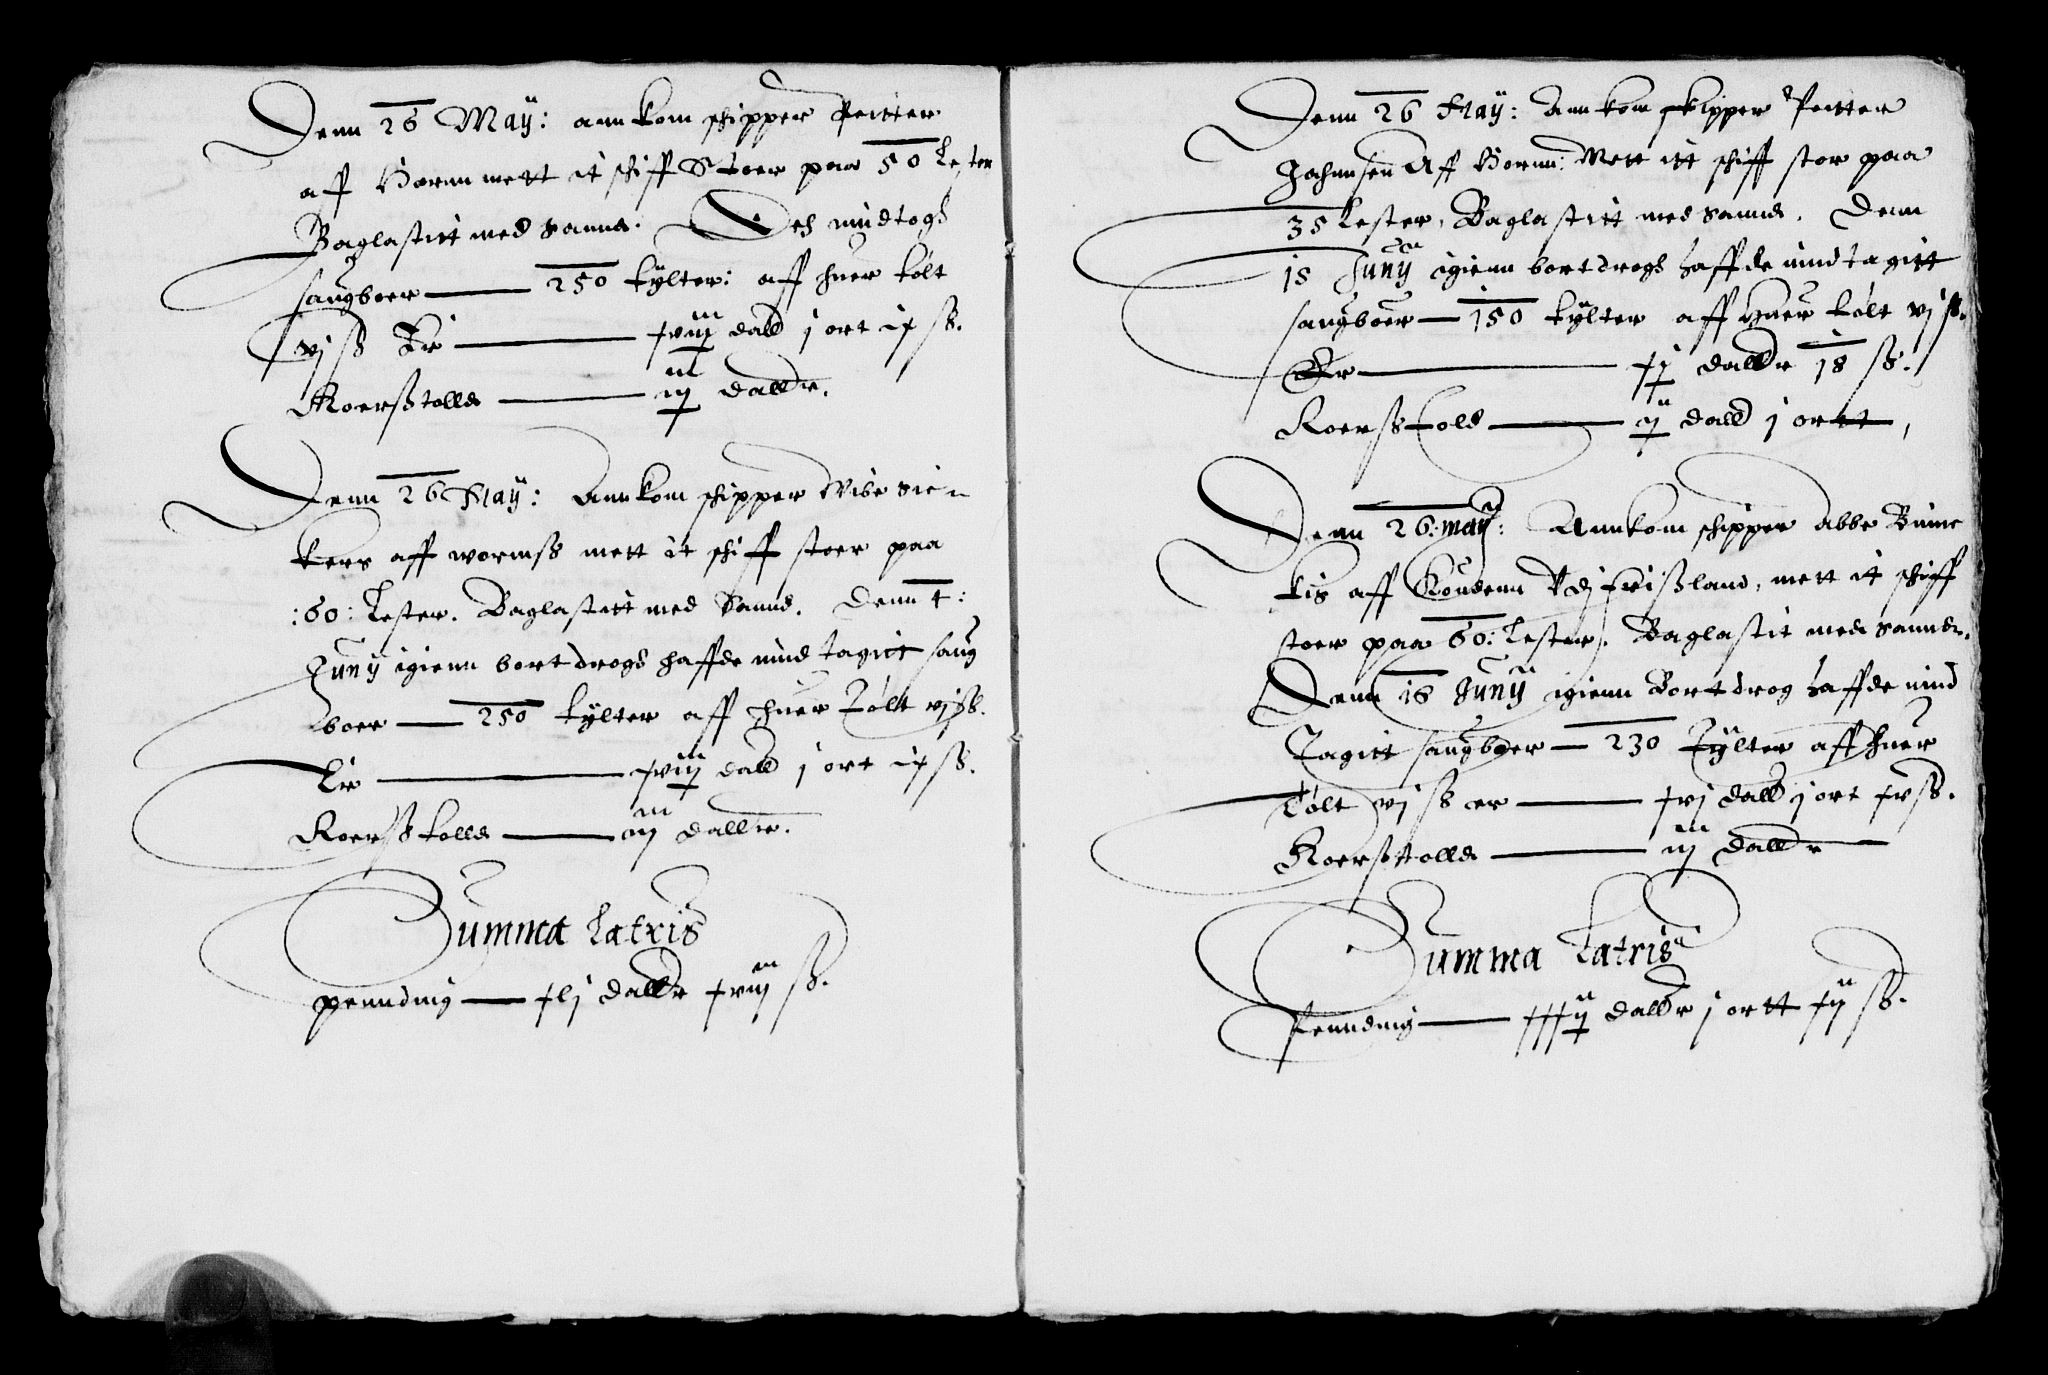 Denn 26 May: ann kom schipper Peitter
aff Hornn mett it schiff Stoer paa 50 Lester
Baglastitt med Sannd. Och inndtogh
saugboer — 250 tylter: aff huer tølt
vj ß Er — xviij dalld j ort ix ß.
Koerßtolld — iij dalldr.
Denn 26 May: Ann kom schipper Vibe Sie-
kers aff wormß mett it schiff stoer paa
:60: Lester. Baglastitt med Sannd. Denn
Juny igienn bortdrogh haffde inndtagitt saug
boer — 250 tylter aff huer Tølt vj ß.
Er — xviij dalld j ort ix ß.
Koerßtolld — iij dalldr.
Summa Latris
penndinng — xlj dalldr xviij ß.
Denn 26 May: Ann kom skipper Peitter
Johannsen Aff Hornn: Mett itt schiff stor paa
35 Lester, Baglastitt med Sannd. Denn
18 Juny igienn bortdrogh haffde inndtagitt
saugboer — 150 tylter aff Huer tølt vj ß.
Er — xj dalldr 18 ß.
Koerßtold — ij dalld j ortt,
Denn 26: may: Annkom schipper Abbe Binne
kis aff Koudenn Vdj Frißland, mett it schiff
stoer paa 60: Lester. Baglastit med Sannd.
Denn 18 Juny igienn Bortdrog haffde innd
Tagitt saugboer — 230 Tylter aff huer
Tølt vj ß er — xvj dalld j ort xv ß.
Koerßtolld — iij dalldr
Summa Latris
Penndinng — xxxij dalldr j ortt xij ß.